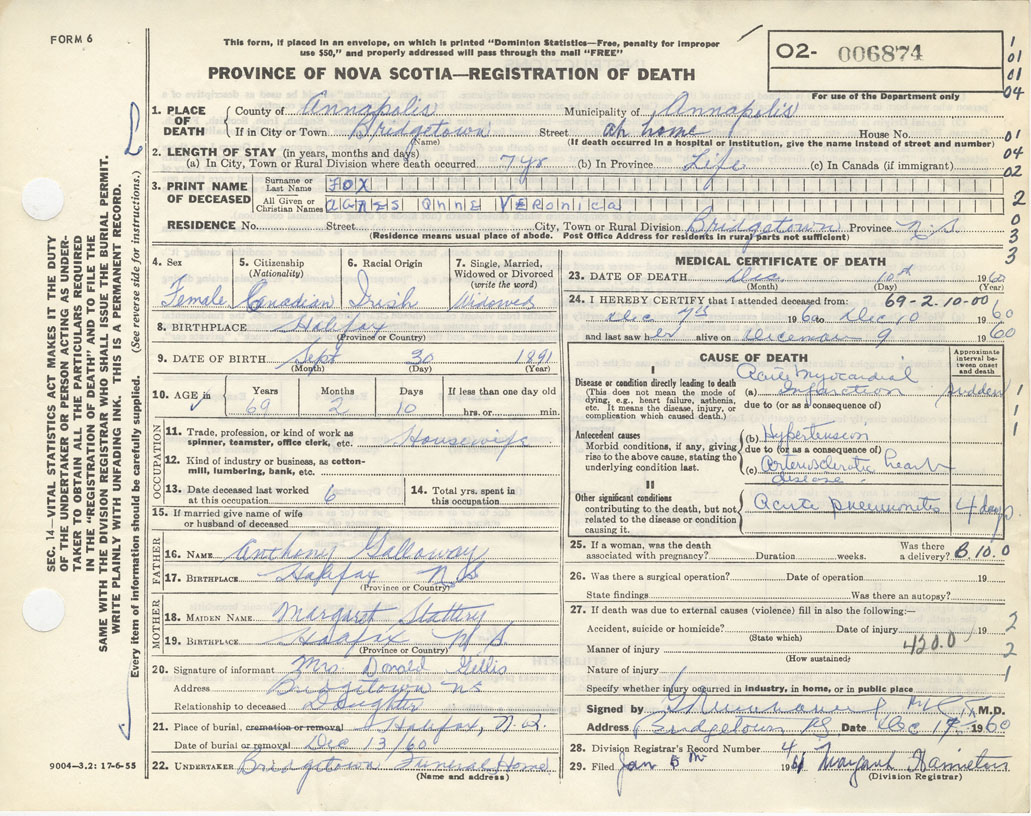 FORM 6
This form, if placed in an envelope, on which is printed "Dominion Statistics—Free, penalty for improper
use $50," and properly addressed will pass through the mail "FREE"
02- 006874
PROVINCE OF NOVA SCOTIA—REGISTRATION OF DEATH
For use of the Department only
1
01
01
04
1. PLACE OF DEATH
County of Annapolis Municipality of Annapolis
If in City or Town Bridgetown Street at home House No.
(Name) (If death occurred in a hospital or institution, give the name instead of street and number)
01
04
02
2. LENGTH OF STAY (in years, months and days)
(a) In City, Town or Rural Division where death occurred 7 yrs (b) In Province Life (c) In Canada (if immigrant)
3. PRINT NAME OF DECEASED
Surname or Last Name FOX
All Given or Christian Names AGNES ANNE VERONICA
2
0
3
3
RESIDENCE No. Street City, Town or Rural Division Bridgetown Province N.S.
(Residence means usual place of abode. Post Office Address for residents in rural parts not sufficient)
4. Sex Female
5. Citizenship (Nationality) Canadian
6. Racial Origin Irish
7. Single, Married, Widowed or Divorced (write the word) Widowed
8. BIRTHPLACE Halifax
(Province or Country)
9. DATE OF BIRTH Sept 30 1891
(Month) (Day) (Year)
10. AGE in Years 69 Months 2 Days 10 If less than one day old
hrs. or min.
OCCUPATION
11. Trade, profession, or kind of work as spinner, teamster, office clerk, etc. Housewife
12. Kind of industry or business, as cotton-mill, lumbering, bank, etc.
13. Date deceased last worked at this occupation 6
14. Total yrs. spent in this occupation
15. If married give name of wife or husband of deceased
FATHER
16. NAME Anthony Gallaway
17. BIRTHPLACE Halifax N S
(Province or Country)
MOTHER
18. MAIDEN NAME Margaret Slattery
19. BIRTHPLACE Halifax N S.
(Province or Country)
20. Signature of informant Mrs. Donald Gillis
Address Bridgetown NS
Relationship to deceased Daughter
21. Place of burial, cremation or removal Halifax, N.S.
Date of burial or removal Dec 13/60
22. UNDERTAKER Bridgetown Funeral Home
(Name and address)
MEDICAL CERTIFICATE OF DEATH
23. DATE OF DEATH Dec 10th 1960
(Month) (Day) (Year)
24. I HEREBY CERTIFY that I attended deceased from: 69-2.10-00
Dec 7th 1960 to Dec 10 1960
and last saw her alive on December 9 1960
CAUSE OF DEATH
Approximate interval between onset and death
I
Disease or condition directly leading to death
(This does not mean the mode of dying, e.g., heart failure, asthenia, etc. It means the disease, injury, or complication which caused death.)
(a) Acute Myocardial Infarction sudden
due to (or as a consequence of)
Antecedent causes
Morbid conditions, if any, giving rise to the above cause, stating the underlying condition last.
(b) Hypertension
due to (or as a consequence of)
(c) Arteriosclerotic heart disease.
II
Other significant conditions
contributing to the death, but not related to the disease or condition causing it.
Acute pneumonitis 4 days.
1
1
1
25. If a woman, was the death associated with pregnancy? Duration weeks. Was there a delivery? B.10.0
26. Was there a surgical operation? Date of operation 19
State findings Was there an autopsy?
27. If death was due to external causes (violence) fill in also the following:—
Accident, suicide or homicide? Date of injury 19
(State which)
Manner of injury 420.0
(How sustained)
Nature of injury
2
2
1
Specify whether injury occurred in industry, in home, or in public place
Signed by M.D.
Address Bridgetown NS Date Dec 19 1960
28. Division Registrar's Record Number 47
29. Filed Jan 1961 Hamilton
(Division Registrar)
SEC. 14—VITAL STATISTICS ACT MAKES IT THE DUTY
OF THE UNDERTAKER OR PERSON ACTING AS UNDER-
TAKER TO OBTAIN ALL THE PARTICULARS REQUIRED
IN THE "REGISTRATION OF DEATH" AND TO FILE THE
SAME WITH THE DIVISION REGISTRAR WHO SHALL ISSUE THE BURIAL PERMIT.
WRITE PLAINLY WITH UNFADING INK. THIS IS A PERMANENT RECORD.
Every item of information should be carefully supplied. (See reverse side for instructions.)
9004—3.2: 17-6-55